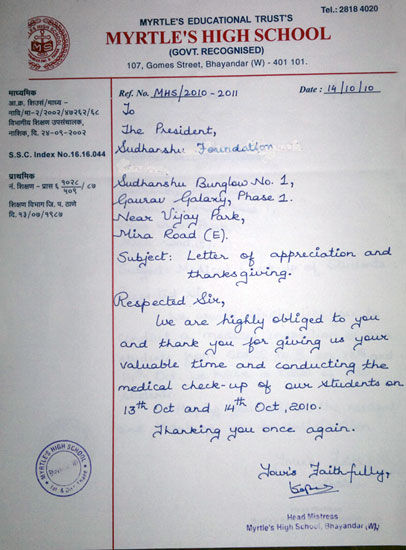 Tel.: 2818 4020
MYRTLE'S EDUCATIONAL TRUST'S
MYRTLE'S HIGH SCHOOL
(GOVT. RECOGNISED)
107, Gomes Street, Bhayandar (W) - 401 101.
माध्यमिक
आ.क्र. शिउसं/माध्य -
नावि/मा-२/२००२/४७२६२/६८
विभागीय शिक्षण उपसंचालक,
नाशिक, दि. २४-०९-२००२
S.S.C. Index No.16.16.044
प्राथमिक
नं. शिक्षण - प्रास ६ १०२८/५०९ / ८७
शिक्षण विभाग जि. प. ठाणे
दि. १३/०७/१९८७
Ref. No. MHS/2010 - 2011
Date : 14/10/10
To
The President,
Sudhanshu Foundation
Sudhanshu Bunglow No. 1,
Gaurav Galaxy, Phase 1.
Near Vijay Park,
Mira Road (E).
Subject: Letter of appreciation and
thanksgiving.
Respected Sir,
We are highly obliged to you
and thank you for giving us your
valuable time and conducting the
medical check-up of our students on
13th Oct and 14th Oct, 2010.
Thanking you once again.
Your's Faithfully,
Head Mistress
Myrtle's High School, Bhayandar (W)
MYRTLE'S HIGH SCHOOL